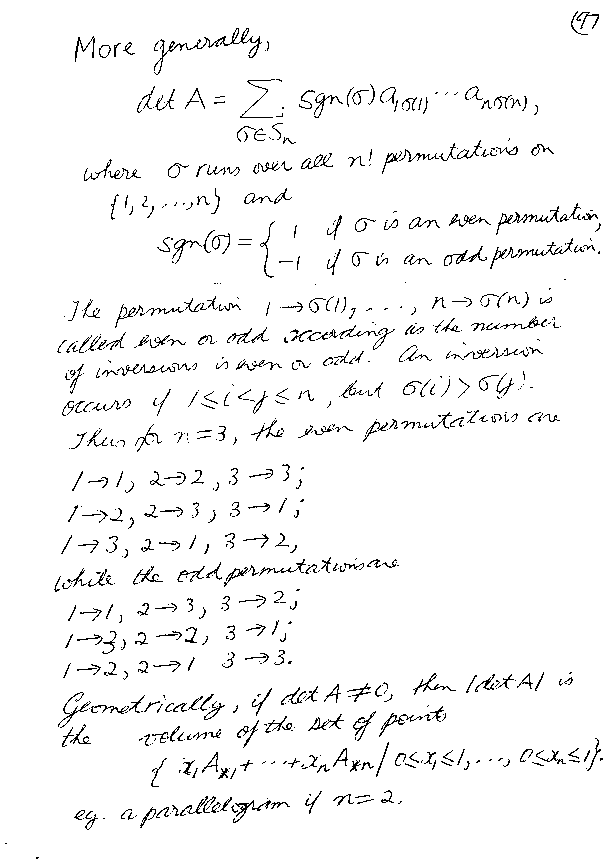 197
More generally,
det A = ∑ sgn(σ) a₁σ(1) ⋯ aₙσ(n),
σ∈Sₙ
where σ runs over all n! permutations on
{1, 2, ..., n} and
sgn(σ) = { 1 if σ is an even permutation,
−1 if σ is an odd permutation.
The permutation 1 → σ(1), ..., n → σ(n) is
called even or odd according as the number
of inversions is even or odd. An inversion
occurs if 1 ≤ i < j ≤ n, but σ(i) > σ(j).
Thus for n = 3, the even permutations are
1 → 1, 2 → 2, 3 → 3;
1 → 2, 2 → 3, 3 → 1;
1 → 3, 2 → 1, 3 → 2,
while the odd permutations are
1 → 1, 2 → 3, 3 → 2;
1 → 3, 2 → 2, 3 → 1;
1 → 2, 2 → 1 3 → 3.
Geometrically, if det A ≠ 0, then |det A| is
the volume of the set of points
{ x₁A*₁ + ⋯ + xₙA*ₙ | 0 ≤ x₁ ≤ 1, ..., 0 ≤ xₙ ≤ 1}.
eg. a parallelogram if n = 2.